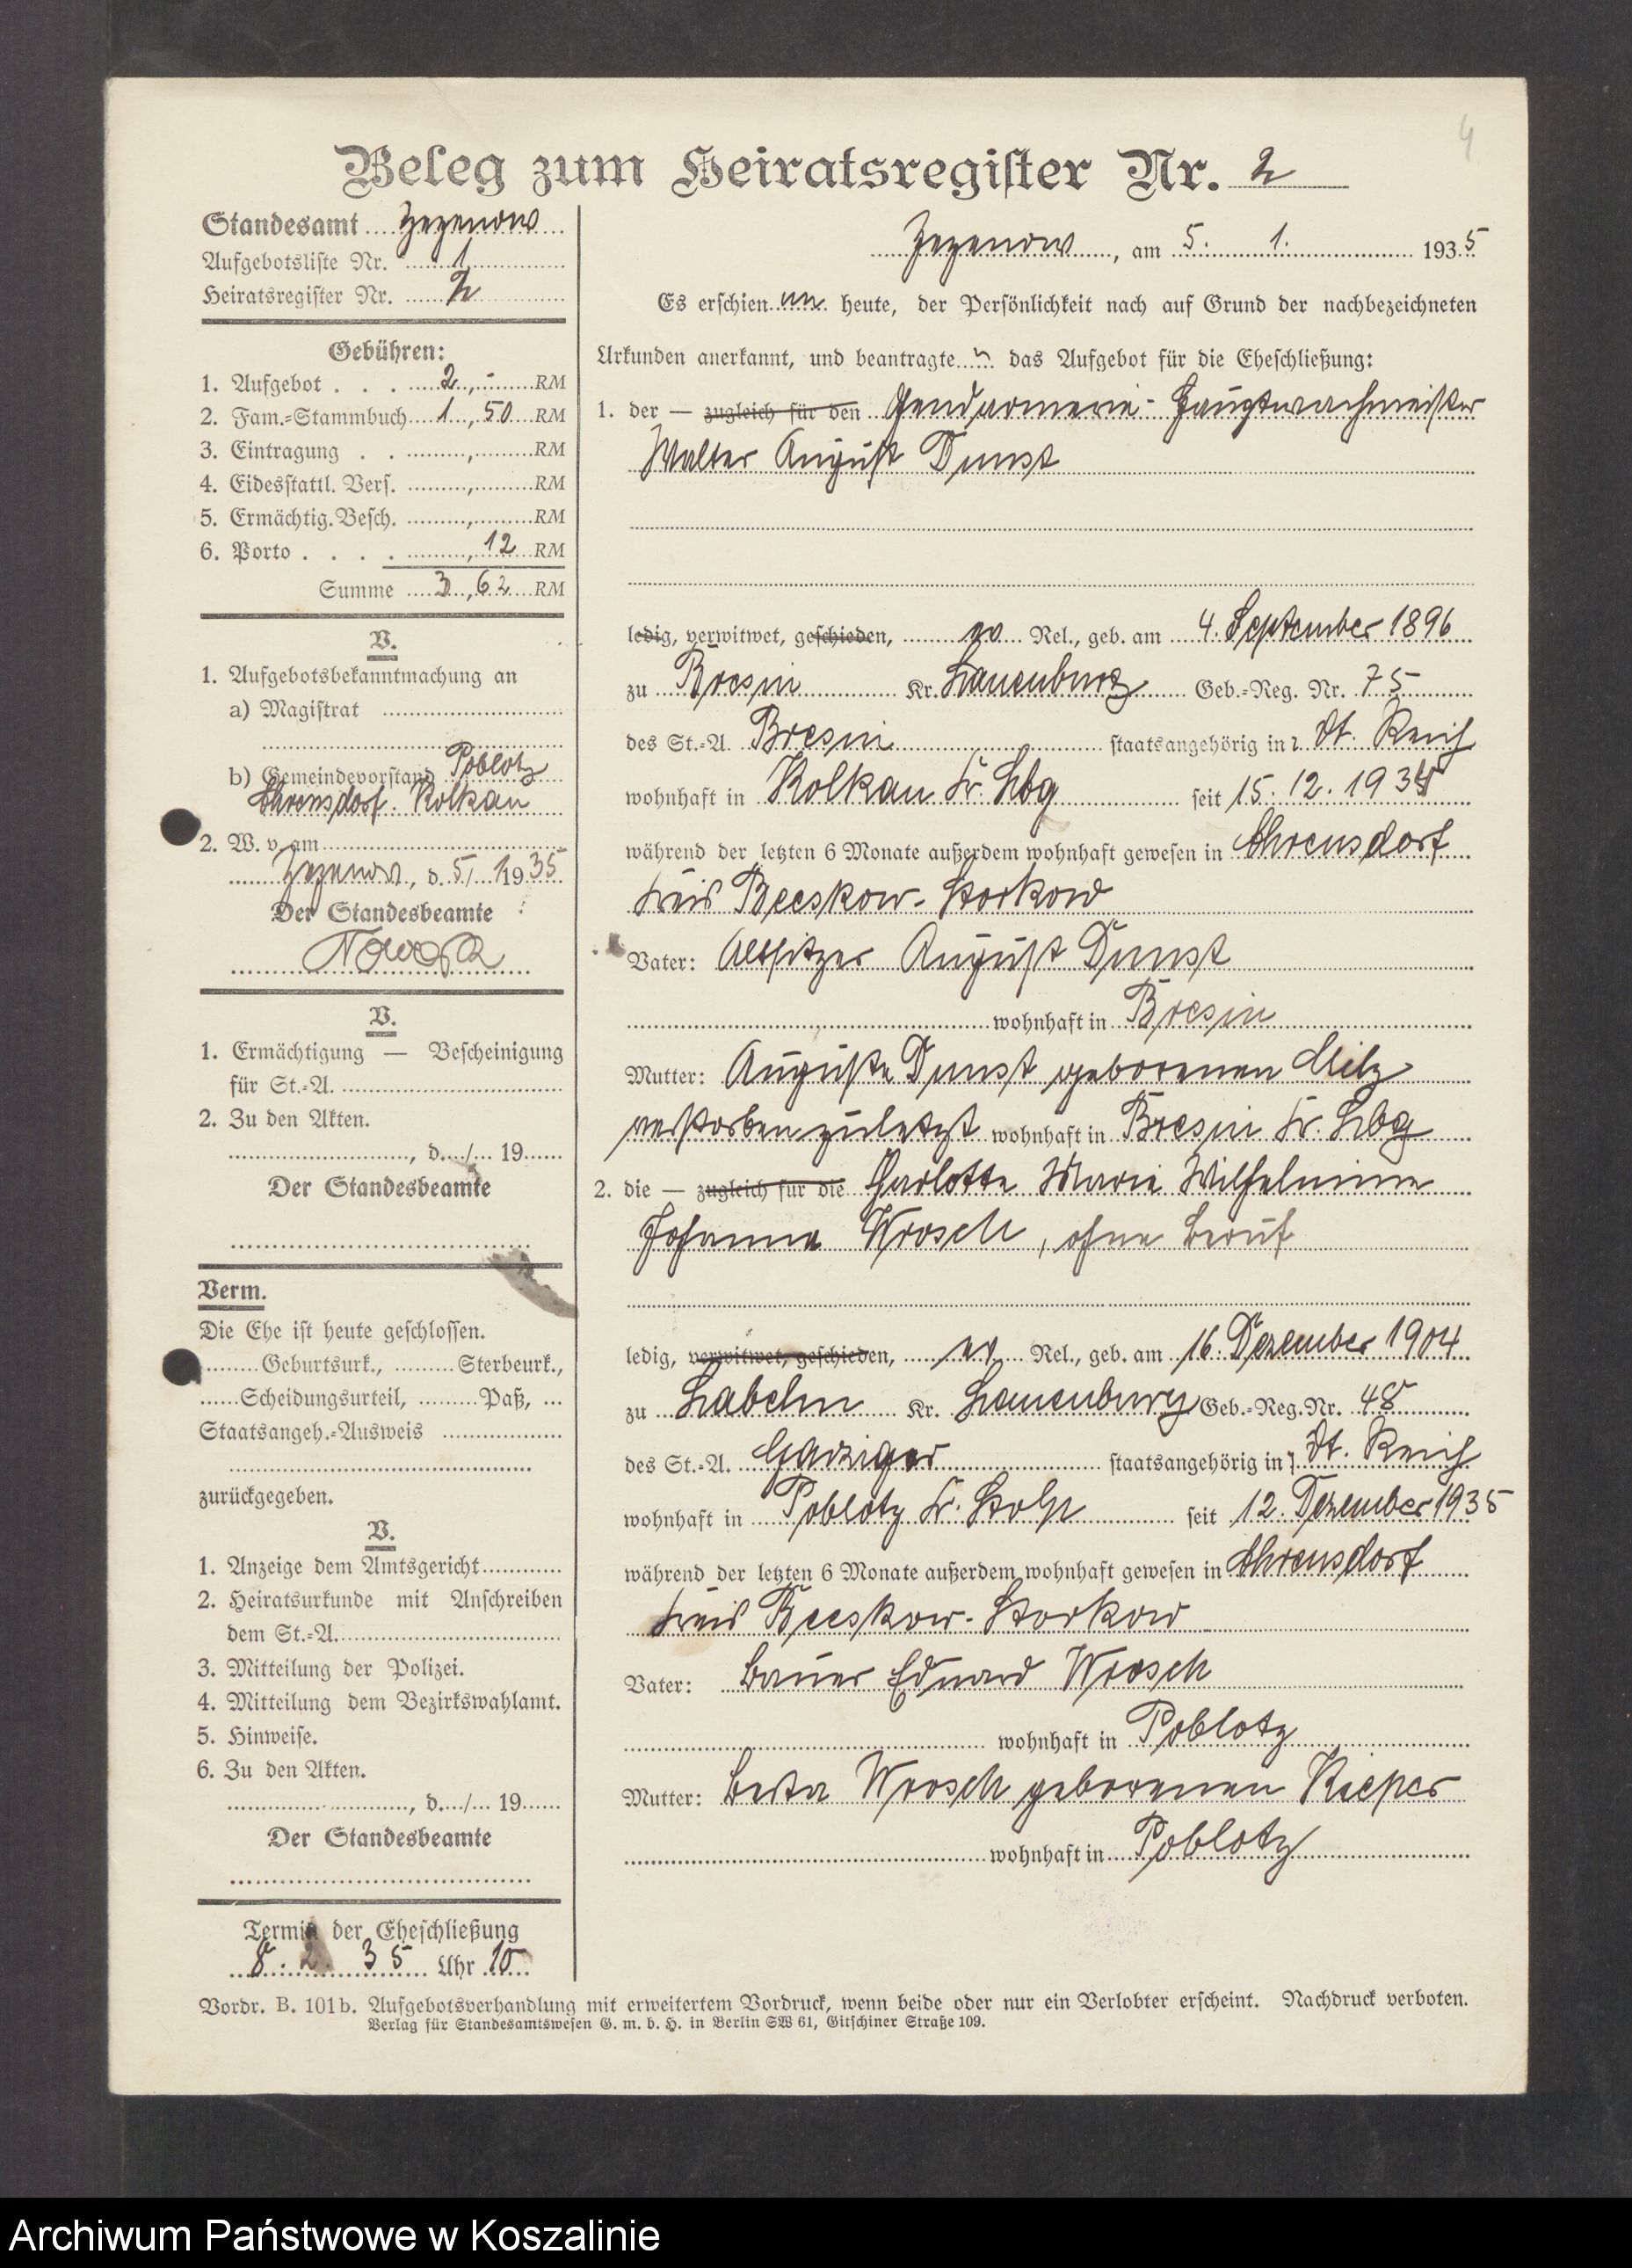 4
Beleg zum Heiratsregister Nr. 2
Standesamt Zezenow
Aufgebotsliste Nr. 1
Heiratsregister Nr. 2
Gebühren:
1. Aufgebot . . . 2,- RM
2. Fam.=Stammbuch 1,50 RM
3. Eintragung . . , RM
4. Eidesstattl. Vers. , RM
5. Ermächtig. Besch. , RM
6. Porto . . . . ,12 RM
Summe 3,62 RM
V.
1. Aufgebotsbekanntmachung an
a) Magistrat
b) Gemeindevorstand Poblotz
Ahrensdorf. Kolkau
2. W. v. am
Zezenow, d. 5/1 1935
Der Standesbeamte
V.
1. Ermächtigung — Bescheinigung
für St.=A.
2. Zu den Akten.
, d. / 19
Der Standesbeamte
Verm.
Die Ehe ist heute geschlossen.
Geburtsurk., Sterbeurk.,
Scheidungsurteil, Paß, ...
Staatsangeh.=Ausweis
zurückgegeben.
V.
1. Anzeige dem Amtsgericht
2. Heiratsurkunde mit Anschreiben
dem St.=A.
3. Mitteilung der Polizei.
4. Mitteilung dem Bezirkswahlamt.
5. Hinweise.
6. Zu den Akten.
, d. / 19
Der Standesbeamte
Termin der Eheschließung
8. 2. 35 Uhr 10
Zezenow, am 5. 1. 1935
Es erschienen heute, der Persönlichkeit nach auf Grund der nachbezeichneten
Urkunden anerkannt, und beantragten das Aufgebot für die Eheschließung:
1. der — zugleich für den Gendarmerie-Hauptwachmeister
Walter August Dunst
ledig, verwitwet, geschieden, ev Rel., geb. am 4. September 1896
zu Bresin Kr. Lauenburg Geb.=Reg. Nr. 75
des St.=A. Bresin staatsangehörig in Dt. Reich
wohnhaft in Kolkau Kr. Lbg seit 15. 12. 1934
während der letzten 6 Monate außerdem wohnhaft gewesen in Ahrensdorf
Kreis Beeskow-Storkow
Vater: Altsitzer August Dunst
wohnhaft in Bresin
Mutter: Auguste Dunst geborenen Milz
verstorben zuletzt wohnhaft in Bresin Kr. Lbg
2. die — zugleich für die Charlotte Marie Wilhelmine
Johanna Wrosch, ohne Beruf
ledig, verwitwet, geschieden, ev Rel., geb. am 16. Dezember 1904
zu Labehn Kr. Lauenburg Geb.=Reg. Nr. 48
des St.=A. Garziger staatsangehörig in Dt. Reich
wohnhaft in Poblotz Kr. Stolp seit 12. Dezember 1935
während der letzten 6 Monate außerdem wohnhaft gewesen in Ahrensdorf
Kreis Beeskow-Storkow
Vater: Bauer Eduard Wrosch
wohnhaft in Poblotz
Mutter: Berta Wrosch geborenen Kieper
wohnhaft in Poblotz
Vordr. B. 101b. Aufgebotsverhandlung mit erweitertem Vordruck, wenn beide oder nur ein Verlobter erscheint. Nachdruck verboten.
Verlag für Standesamtswesen G. m. b. H. in Berlin SW 61, Gitschiner Straße 109.
Archiwum Państwowe w Koszalinie